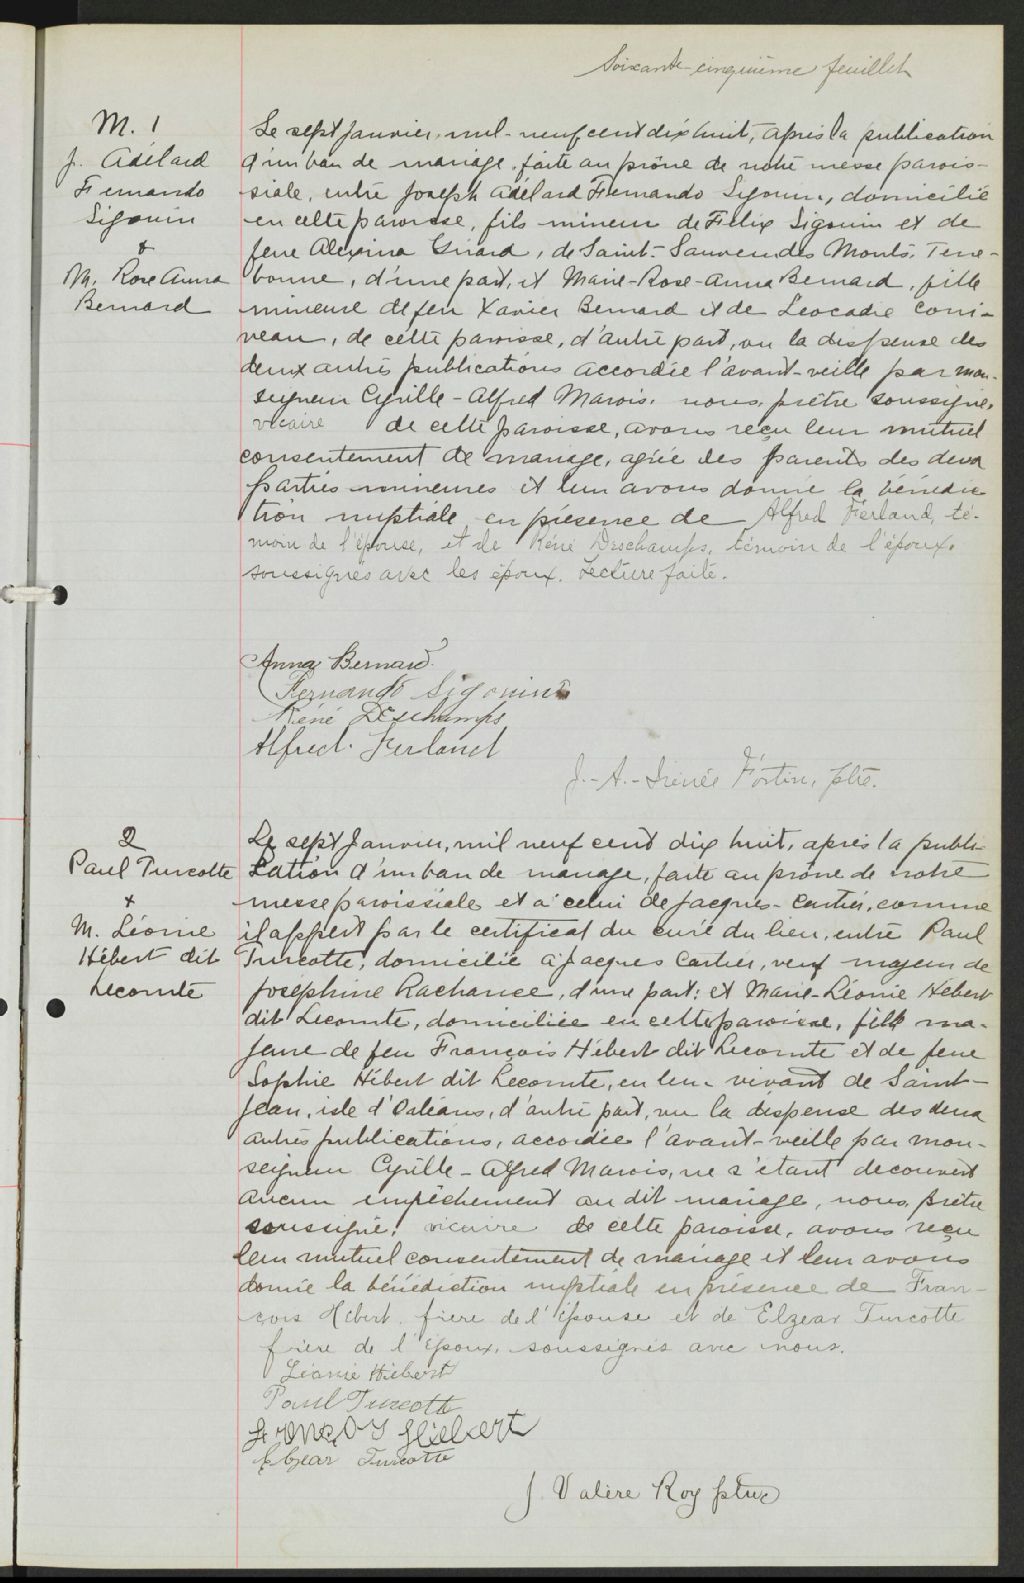 Soixante-cinquième feuillet
M. 1
J. Adélard
Fernando
Sigouin
&
M. Rose Anna
Bernard
Le sept janvier, mil-neuf cent dix huit, après la publication
d'un ban de mariage, faite au prône de notre messe parois-
siale, entre Joseph Adélard Fernando Sigouin, domicilié
en cette paroisse, fils mineur de Félix Sigouin et de
feue Alexina Girard, de Saint-Sauveur des Monts, Terre-
bonne, d'une part, et Marie-Rose-Anna Bernard, fille
mineure de feu Xavier Bernard et de Léocadie Corri-
veau, de cette paroisse, d'autre part, vu la dispense des
deux autres publications accordée l'avant-veille par mon-
seigneur Cyrille-Alfred Marois, nous, prêtre soussigné,
vicaire de cette paroisse, avons reçu leur mutuel
consentement de mariage, agréé des parents des deux
parties mineures et leur avons donné la bénédic
tion nuptiale en présence de Alfred Ferland, té-
moin de l'épouse, et de Réné Deschamps, témoin de l'époux,
soussignés avec les époux. Lecture faite.
Anna Bernard
Fernando Sigouin
Réné Deschamps
Alfred Ferland
J.-A.-Irénée Fortin, ptre.
2
Paul Turcotte
&
M. Léonie
Hébert dit
Lecomte
Le sept janvier, mil neuf cent dix huit, après la publi
cation d'un ban de mariage, faite au prône de notre
messe paroissiale et à celui de Jacques-Cartier, comme
il appert par le certificat du curé du lieu, entre Paul
Turcotte, domicilié à Jacques Cartier, veuf majeur de
Joséphine Lachance, d'une part; et Marie-Léonie Hébert
dit Lecomte, domiciliée en cette paroisse, fille ma-
jeure de feu François Hébert dit Lecomte et de feue
Sophie Hébert dit Lecomte, en leur vivant de Saint-
Jean, isle d'Orléans, d'autre part, vu la dispense des deux
autres publications, accordée l'avant-veille par mon-
seigneur Cyrille-Alfred Marois, ne s'étant découvert
aucun empêchement au dit mariage, nous, prêtre
soussigné, vicaire de cette paroisse, avons reçu
leur mutuel consentement de mariage et leur avons
donné la bénédiction nuptiale en présence de Fran-
çois Hébert, frère de l'épouse et de Elzéar Turcotte
frère de l'époux, soussignés avec nous.
Léonie Hébert
Paul Turcotte
François Hébert
Elzear Turcotte
J. Valère Roy ptre